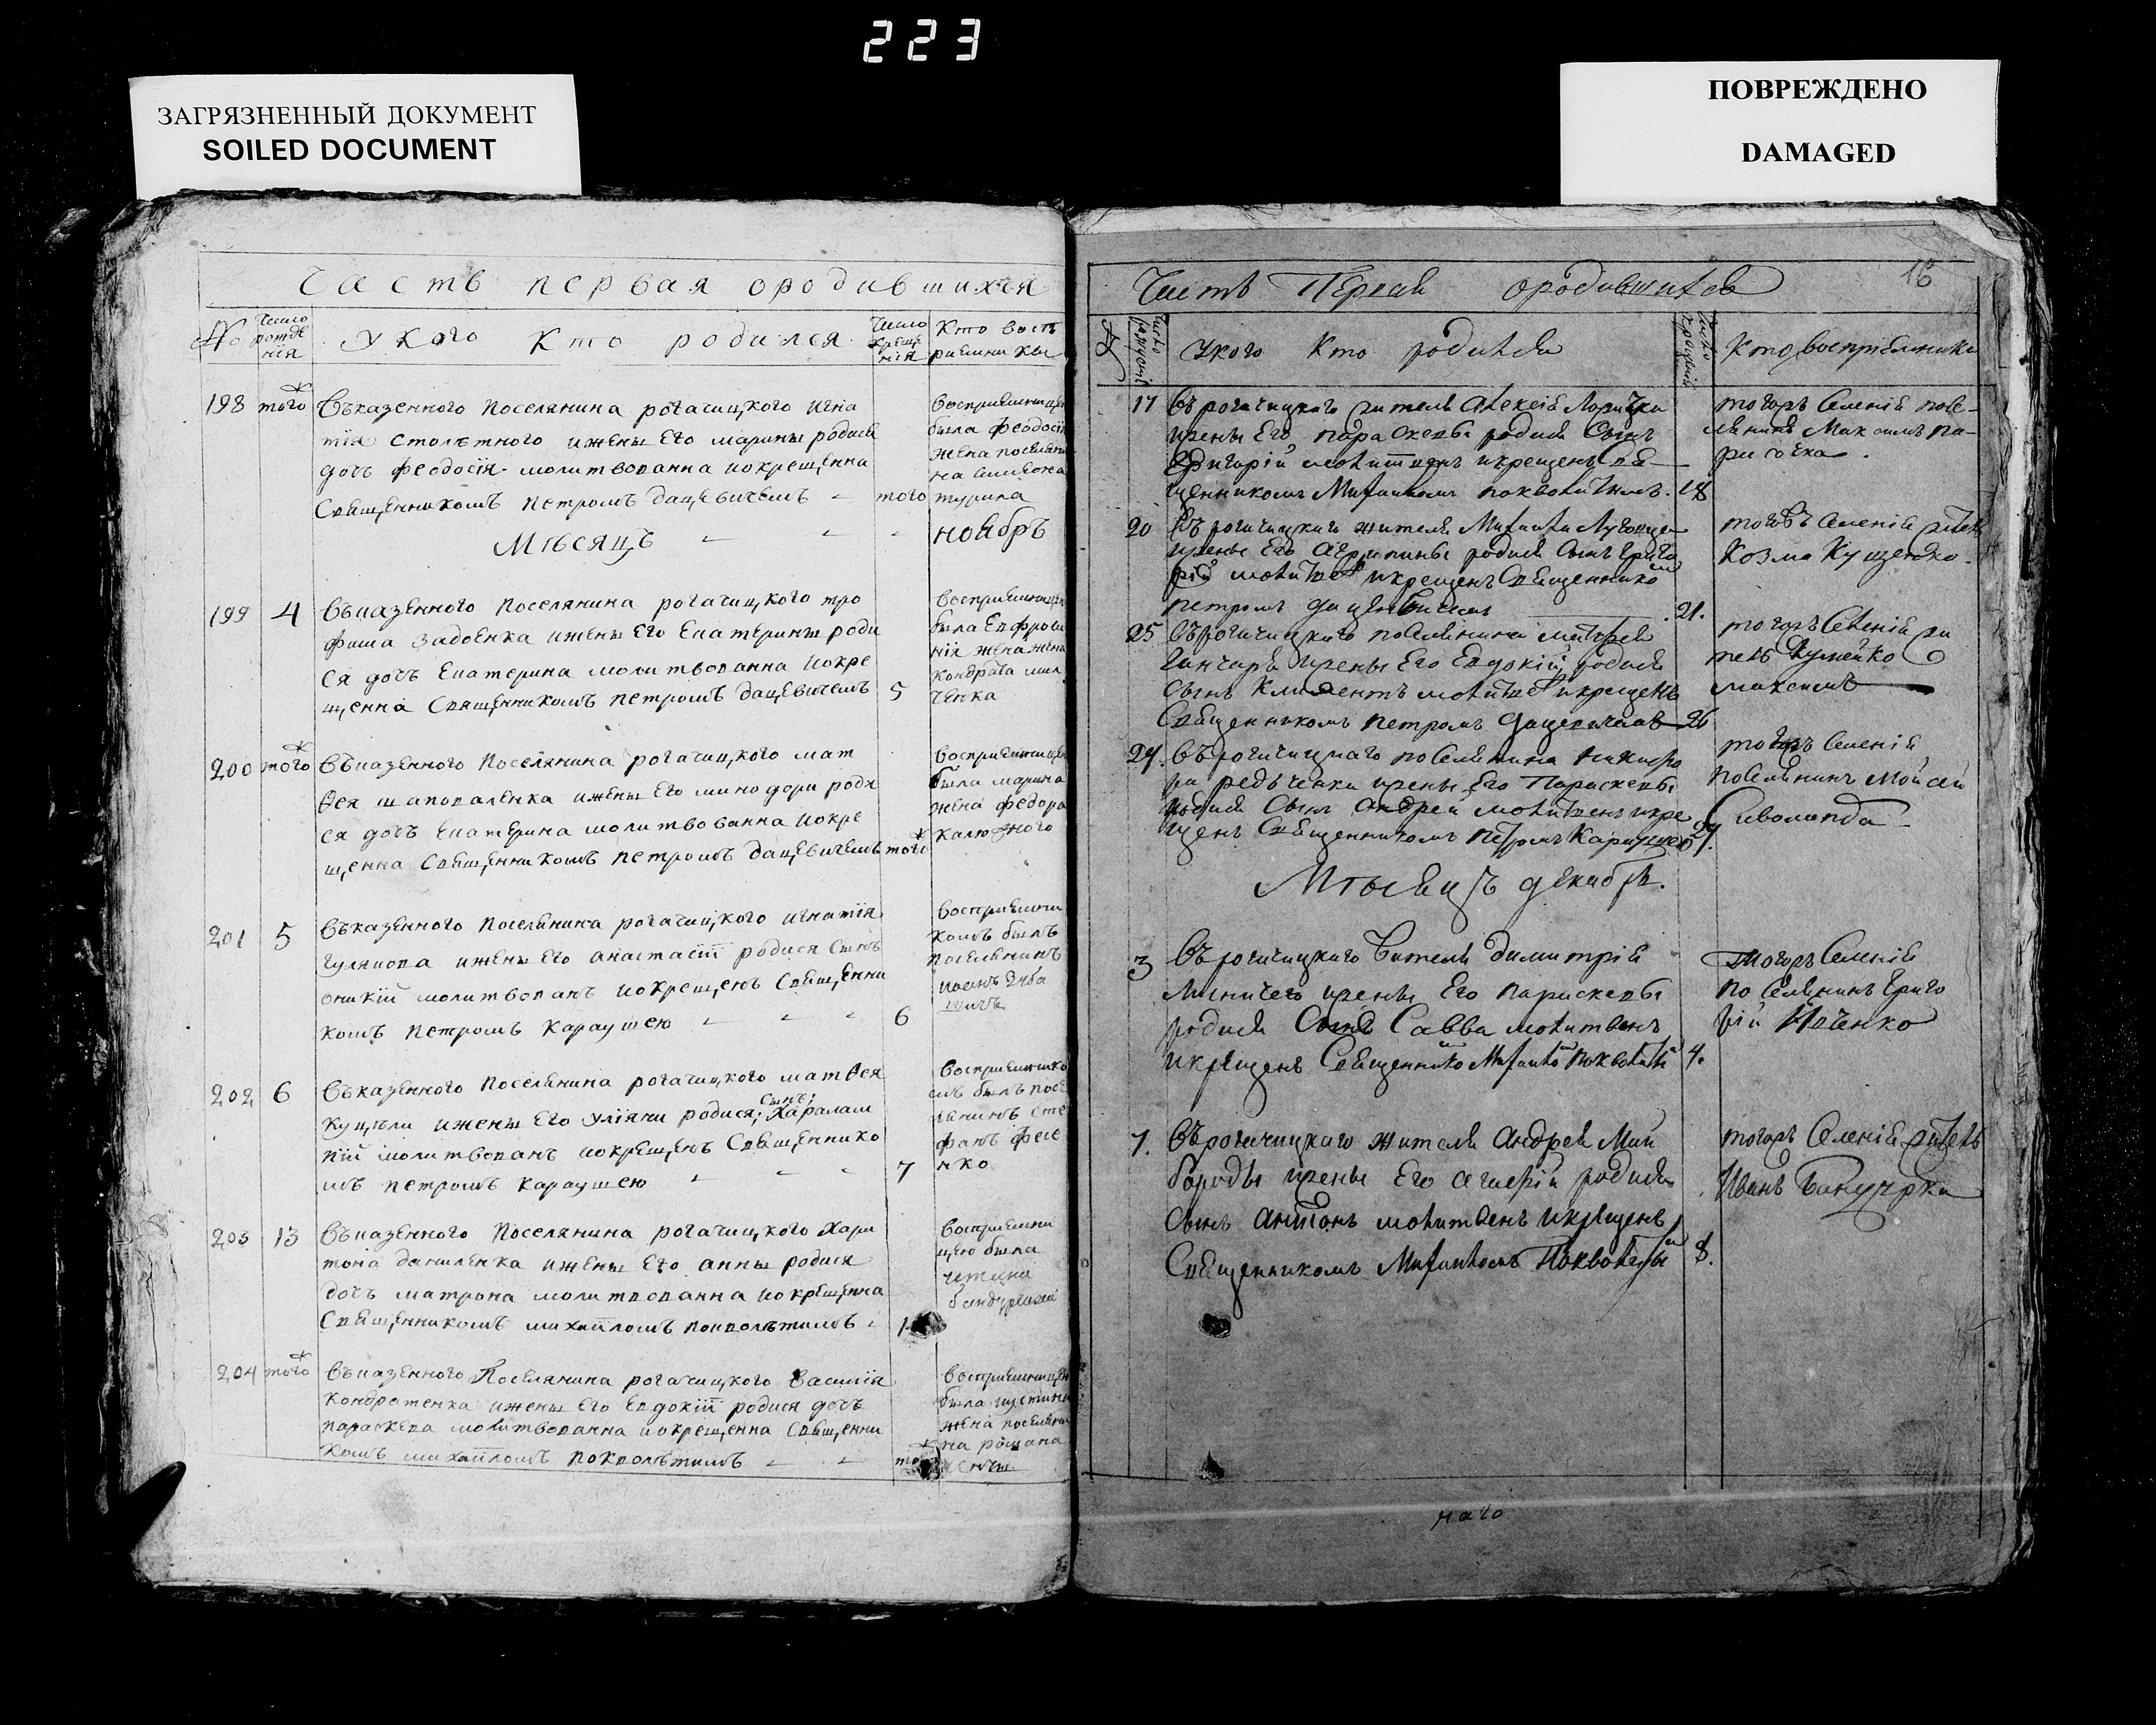 223
ЗАГРЯЗНЕННЫЙ ДОКУМЕНТ
SOILED DOCUMENT
ПОВРЕЖДЕНО
DAMAGED
Часть первая ородившихся
№ Число рожде нія У кого Кто родился Число креще нія Кто восп риемники
198 того Въказенного поселянина рогачицкого Игна
тія столѣтного ижены Его марины родися
дочь феодосія молитвованна иокрещенна
Священникомъ петромъ дацевичемъ того
воспрыемницею
была феодосія
жена поселяни
на симеона
турина
Мѣсяцъ ноябръ
199 4 Въказенного поселянина рогачицкого тро
фима задоенка ижены Его Екатерины роди
ся дочь Екатерина молитвованна иокре
щенна Священникомъ петромъ дацевичемъ 5
была Евфроси
нія жена
кондрата мил
ченка
200 того Въказенного Поселянина рогачицкого мат
ѳея шаповаленка ижены Его минодори роди
ся дочь Екатерина молитвованна иокре
щенна Священникомъ петромъ дацевичемъ того
была марина
жена федора
калюжного
201 5 Въказенного поселянина рогачицкого игнатія
гулякова ижены Его анастасіи родися Сынъ
оникій молитвованъ иокрещенъ Священни
комъ петромъ караушею 6
воспрыемни
комъ былъ
поселянинъ
202 6 Въказенного поселянина рогачицкого матѳея
куцѣли ижены Его уліяни родися Сынъ Харалам
пій молитвованъ иокрещенъ Священнико
мъ петромъ караушею 7
воспрыемнико
мъ былъ посе
лянинъ сте
фанъ фесе
нко
203 13 Въказенного поселянина рогачицкого хари
тона даниленка ижены Его анны родися
дочь матрона молитвованна иокрещенна
Священникомъ михайломъ покволѣтимъ
воспрыемни
цею была
204 того Въказенного Поселянина рогачицкого василія
кондратенка ижены Его Евдокіи родися дочь
параскева молитвованна иокрещенна Священни
комъ михайломъ покволѣтимъ
была
жена поселяни
на романа
16
Часть Первая ородившихся
№ Число рождения Укого Кто родился Число крещения Кто восприемники
17 Въ рогачицкого жителя Алексія
ижены Его параскевы родися Сынъ
Григорій молитвенъ икрещенъ Свя
щенникомъ Михаиломъ покволитимъ. 18
тогожъ Селенія посе
лянинъ Максимъ
20 Въ рогачицкаго жителя Михаила
ижены Его Агрипины родися Сынъ Григо
рій молитве икрещенъ Священнико
петромъ дацевичемъ 21.
тогожъ Селенія житель
Козма Куценко.
25 Въ рогачицкаго поселянина
Ганчаря ижены Его Евдокій родися
Сынъ Климентъ молитве икрещенъ
Священникомъ петромъ дацевичемъ 26
тогожъ Селенія жи
тель Кумейко
максимъ
27. Въ рогачицкаго поселянина никифо
ра редченка ижены Его Параскевы
родися Сынъ Андрей молитвенъ икре
щенъ Священникомъ петромъ Караушею 27.
тогожъ Селенія
поселянинъ Мойсей
Мѣсяцъ декабръ.
3 Въ рогачицкаго жителя димитрія
ижены Его параскевы
родися Сынъ Савва молитвенъ
икрещенъ Священнико Михаило 4.
тогожъ Селенія
поселянинъ Григо
рій Ивченко
7. Въ рогачицкаго жителя Андрея Май
бороды ижены Его родися
Сынъ Антонъ молитвенъ икрещенъ
Священникомъ Михаиломъ 8.
тогожъ Селенія житель
Иванъ